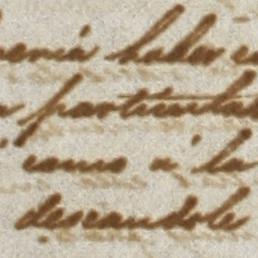 haber
particular
como á la
deseandole